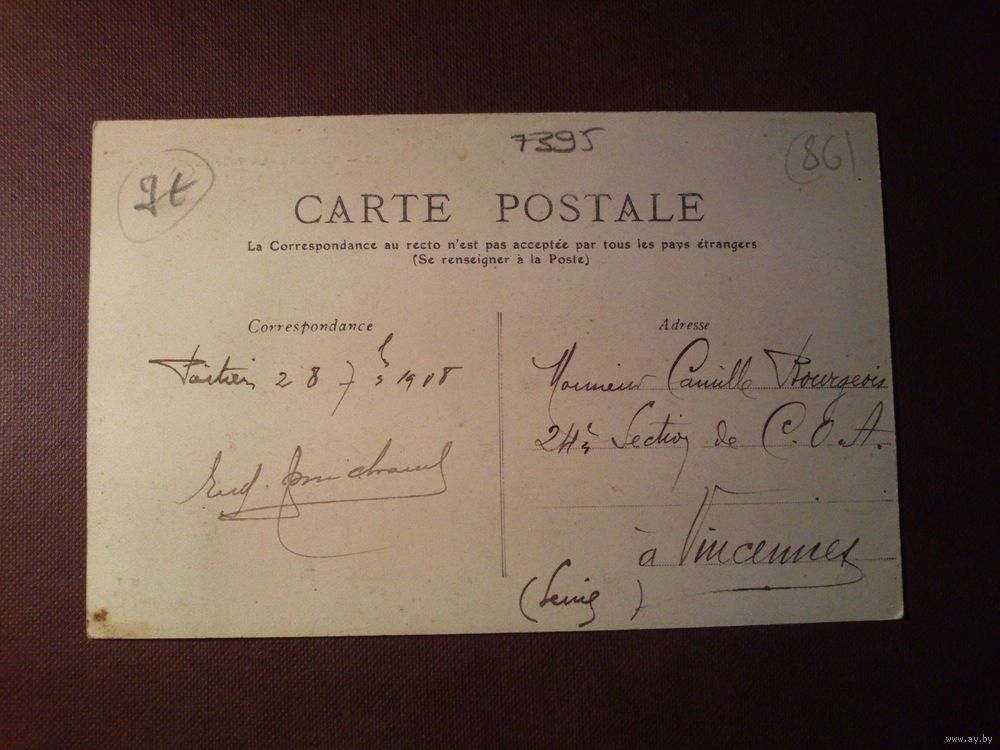 7395
(86)
CARTE POSTALE
La Correspondance au recto n'est pas acceptée par tous les pays étrangers
(Se renseigner à la Poste)
Correspondance
Poitiers 28 7bre 1908
Adresse
Monsieur Camille Bourgeois
24è Section de C.O.A.
à Vincennes
(Seine)
www.ay.by